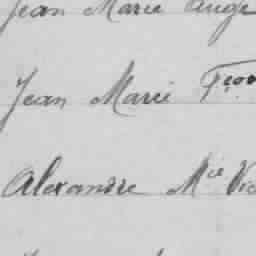 Jean Marie Ange
Jean Marie
Alexandre Mie Vic